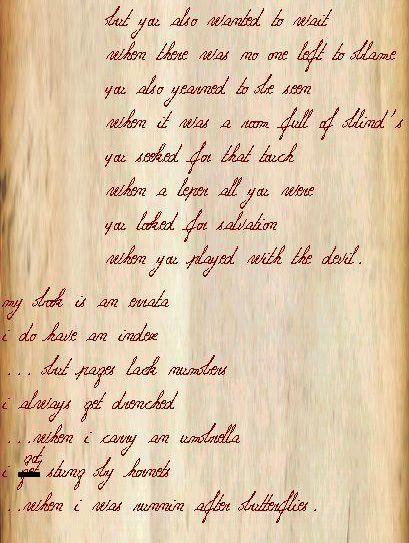 but you also wanted to wait
when there was no one left to blame
you also yearned to be seen
when it was a room full of blind's
you seeked for that touch
when a leper all you were
you looked for salvation
when you played with the devil.
my book is an errata
i do have an index
... but pages lack numbers
i always get drenched
...when i carry an umbrella
i got stung by hornets
..when i was runnin after butterflies.